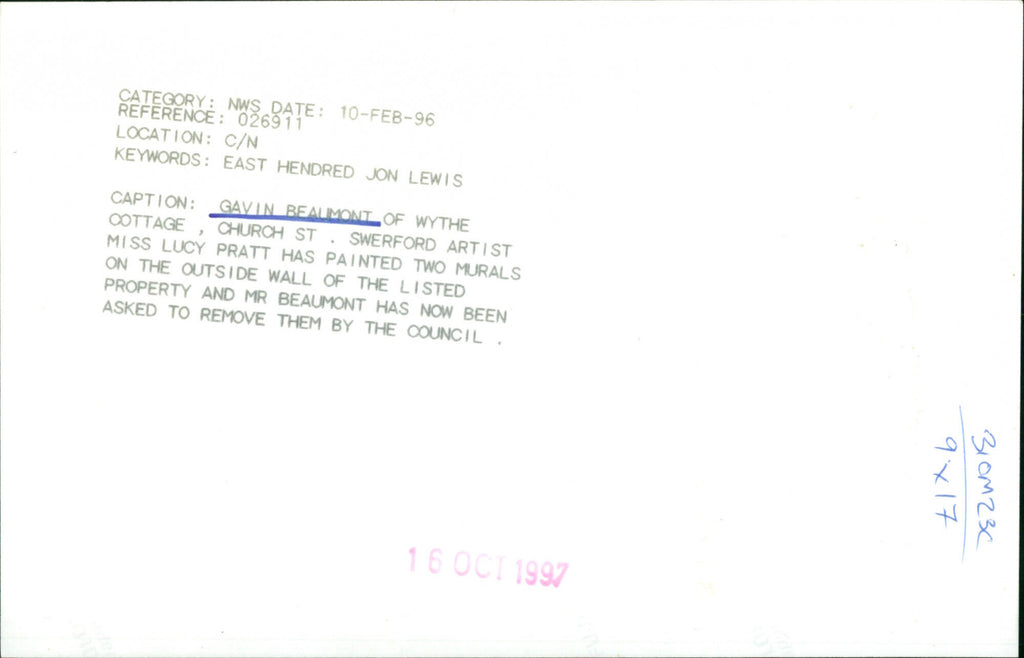 CATEGORY: NWS DATE: 10-FEB-96
REFERENCE: 026911
LOCATION: C/N
KEYWORDS: EAST HENDRED JON LEWIS
CAPTION: GAVIN BEAUMONT OF WYTHE
COTTAGE , CHURCH ST . SWERFORD ARTIST
MISS LUCY PRATT HAS PAINTED TWO MURALS
ON THE OUTSIDE WALL OF THE LISTED
PROPERTY AND MR BEAUMONT HAS NOW BEEN
ASKED TO REMOVE THEM BY THE COUNCIL .
16 OCT 1997
9 x 17